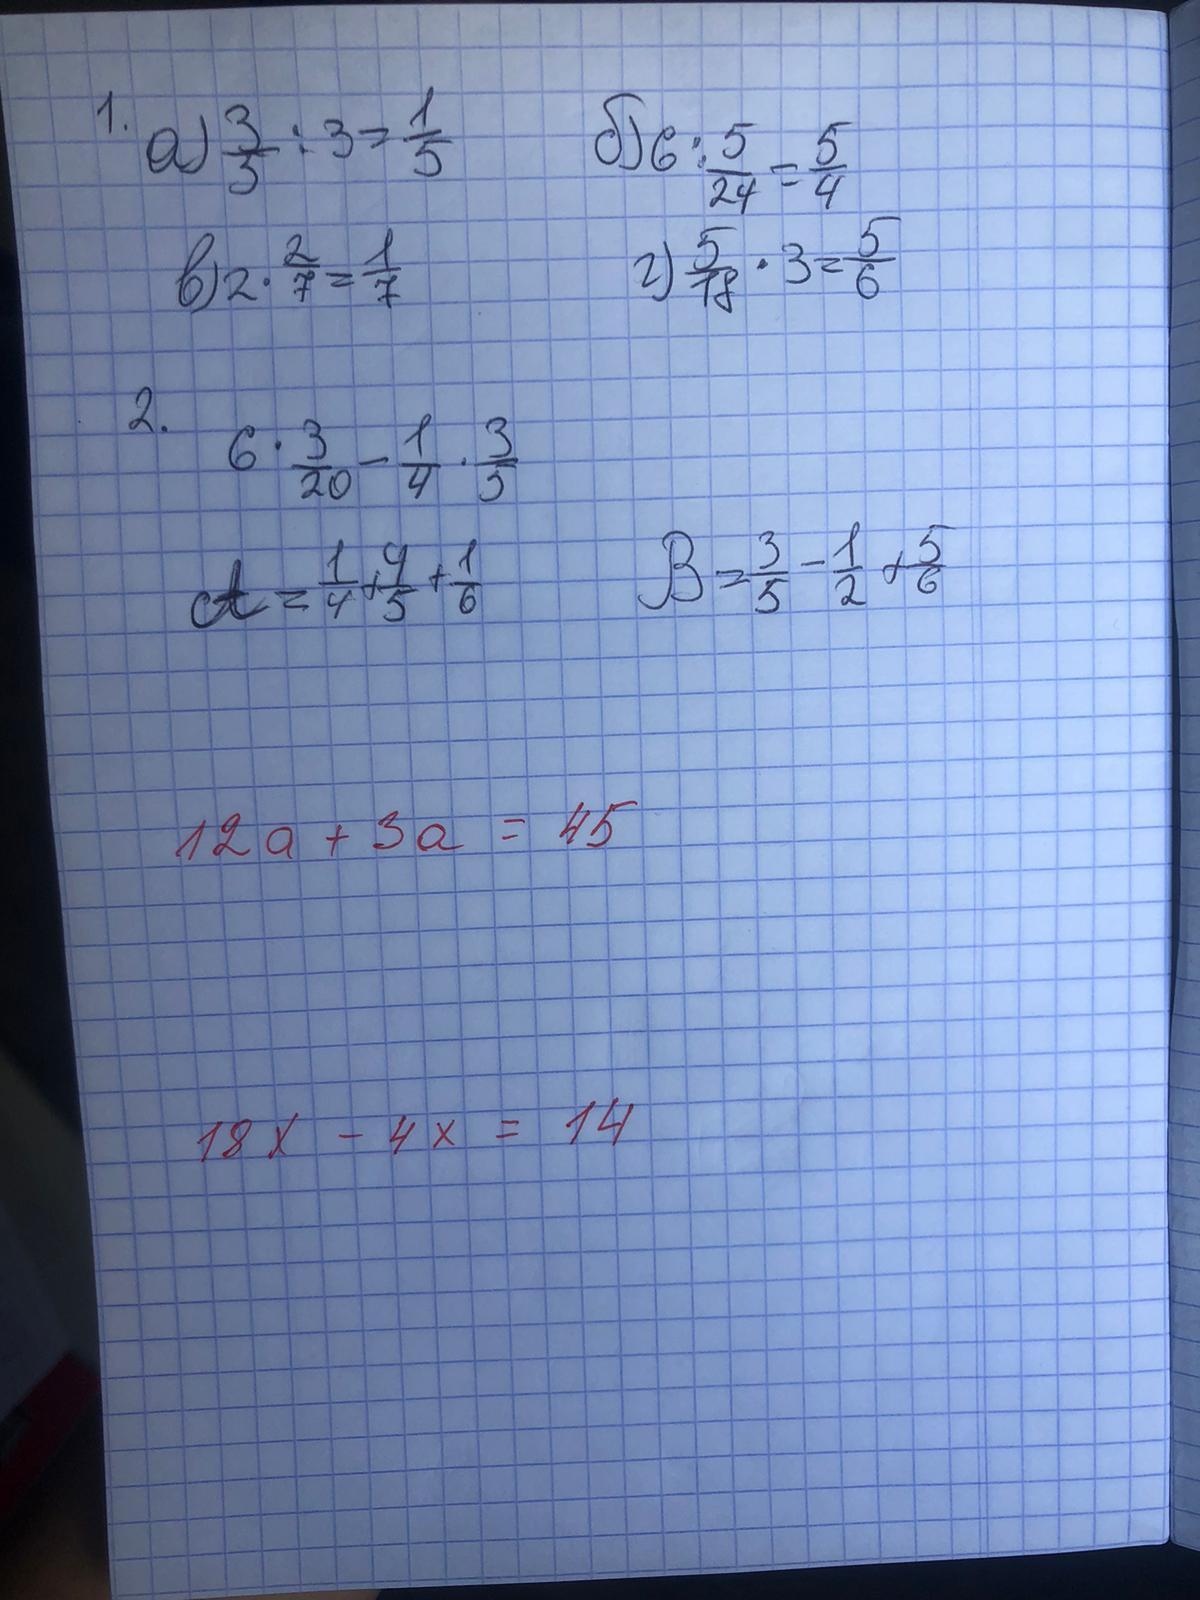 1. а) 3/5 : 3 = 1/5 б) 6 : 5/24 = 5/4
в) 2 · 2/7 = 1/7 г) 5/18 · 3 = 5/6
2. 6 · 3/20 - 1/4 · 3/5
A = 1/4 + 4/5 + 1/6 B = 3/5 - 1/2 + 5/6
12a + 3a = 45
18x - 4x = 14